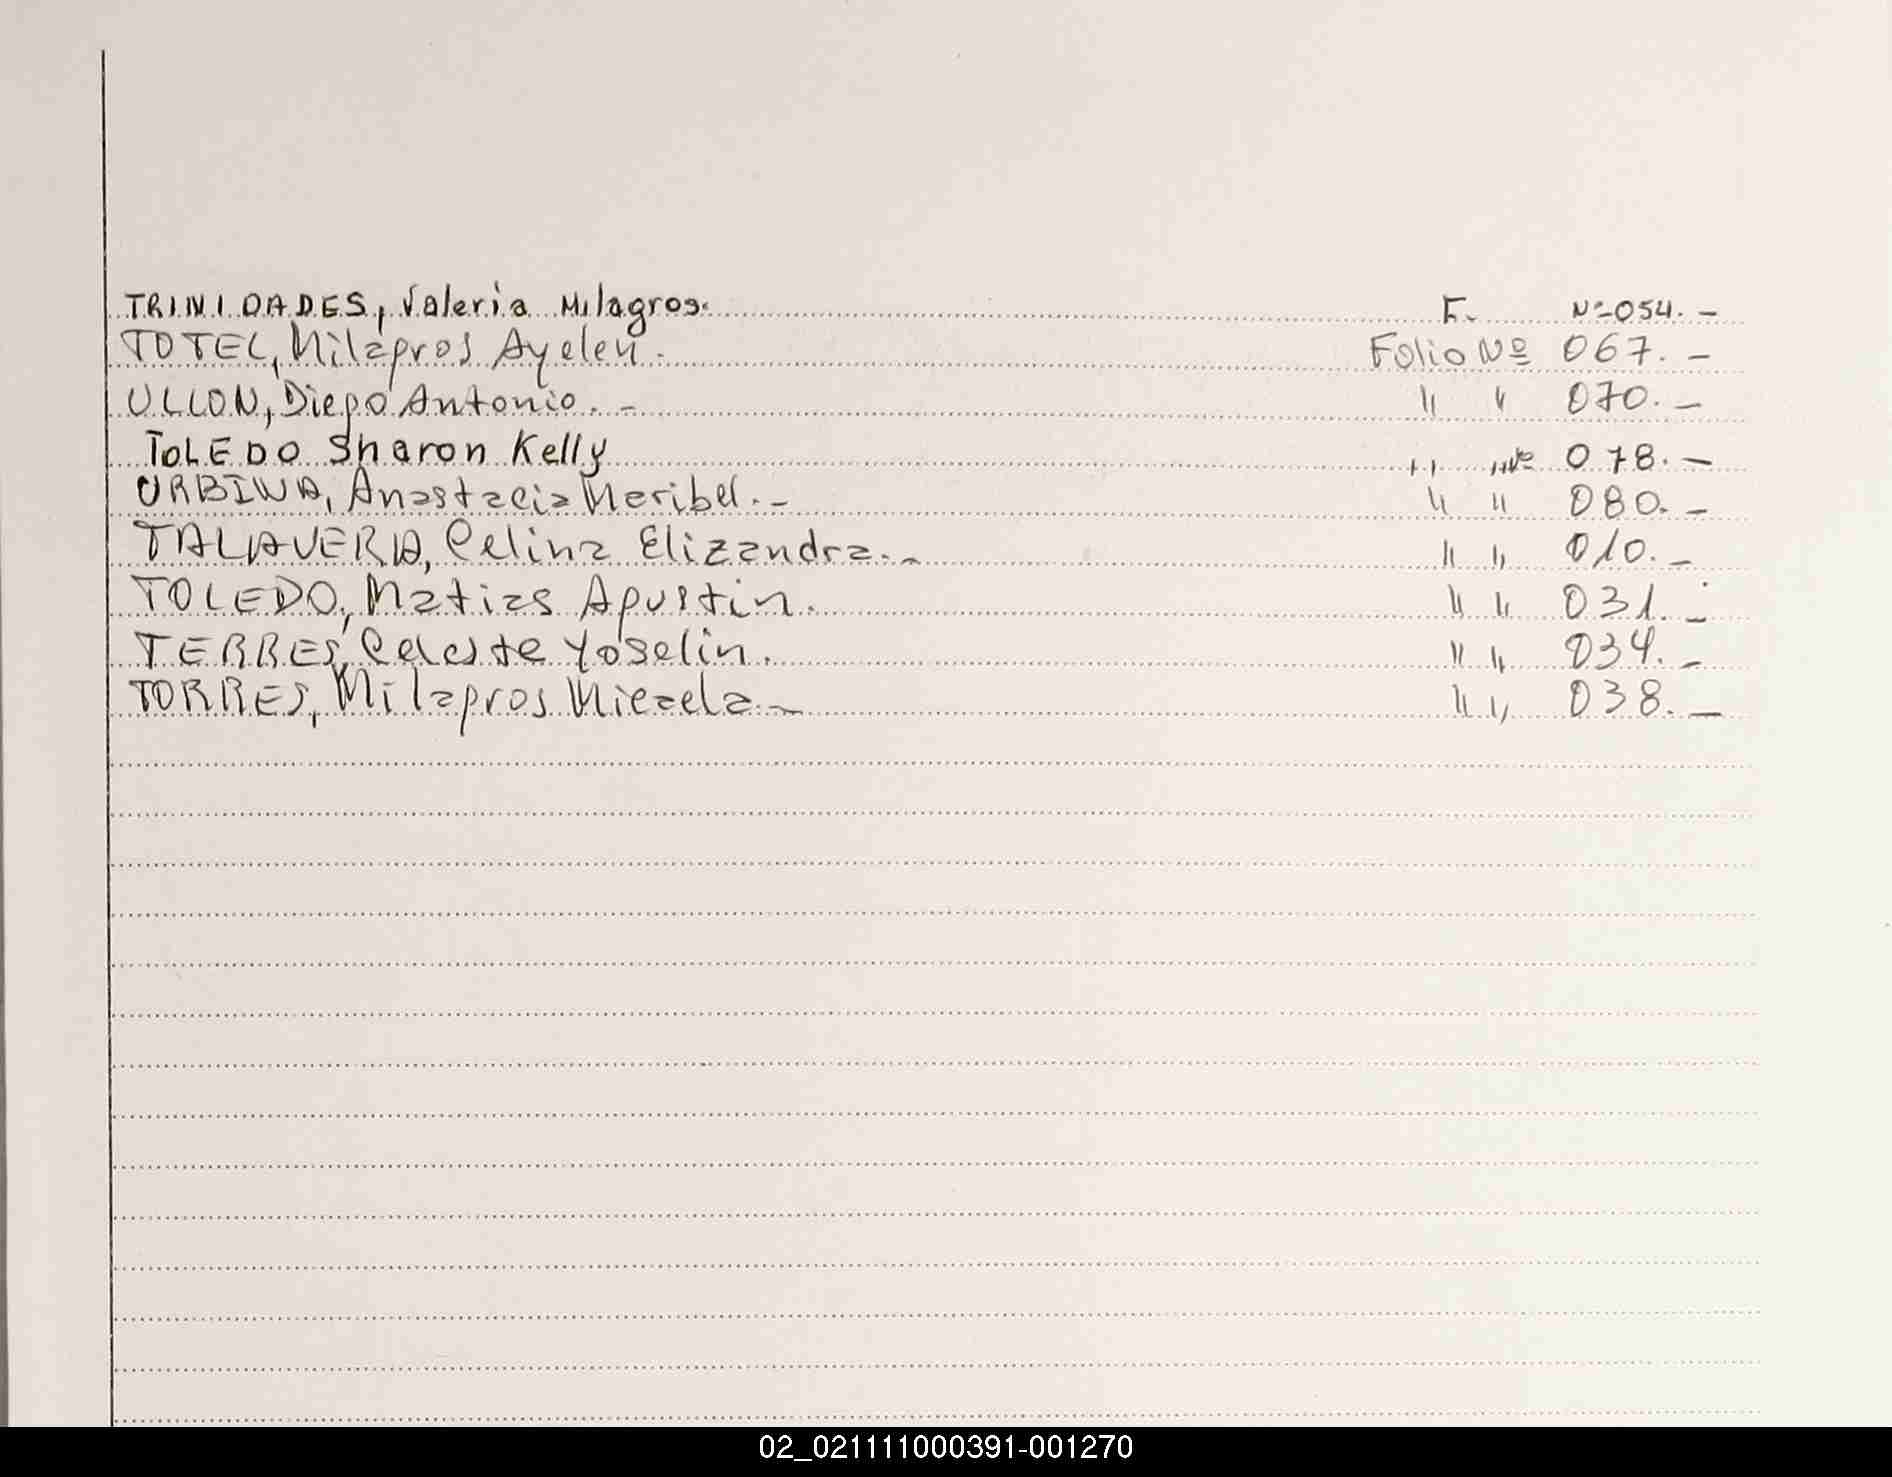 TRINIDADES, Valeria Milagros. F. Nº 054. -
TOTEL, Milagros Ayelen. Folio Nº 067. -
ULLON, Diego Antonio. - " " 070. -
TOLEDO Sharon Kelly " " Nº 078. -
URBINA, Anastacia Maribel. - " " 080. -
TALAVERA, Celina Elizandra. - " " 010. -
TOLEDO, Matias Agustin. " " 031. -
TERRES, Celeste Yoselin. " " 034. -
TORRES, Milagros Micaela. - " " 038. -
02_021111000391-001270